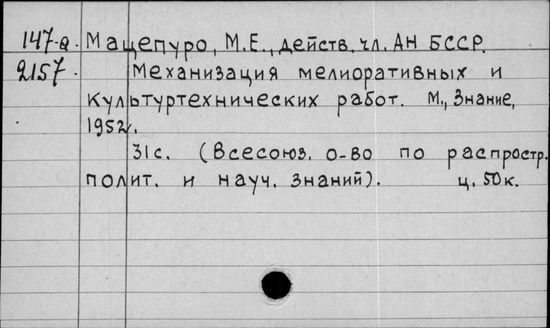 147-а. Мацепуро, М.Е., действ. чл. АН БССР.
2157. Механизация мелиоративных и
культуртехнических работ. М., Знание,
1952.
31с. (Всесоюз. о-во по распростр.
полит. и науч. знаний). ц. 50к.